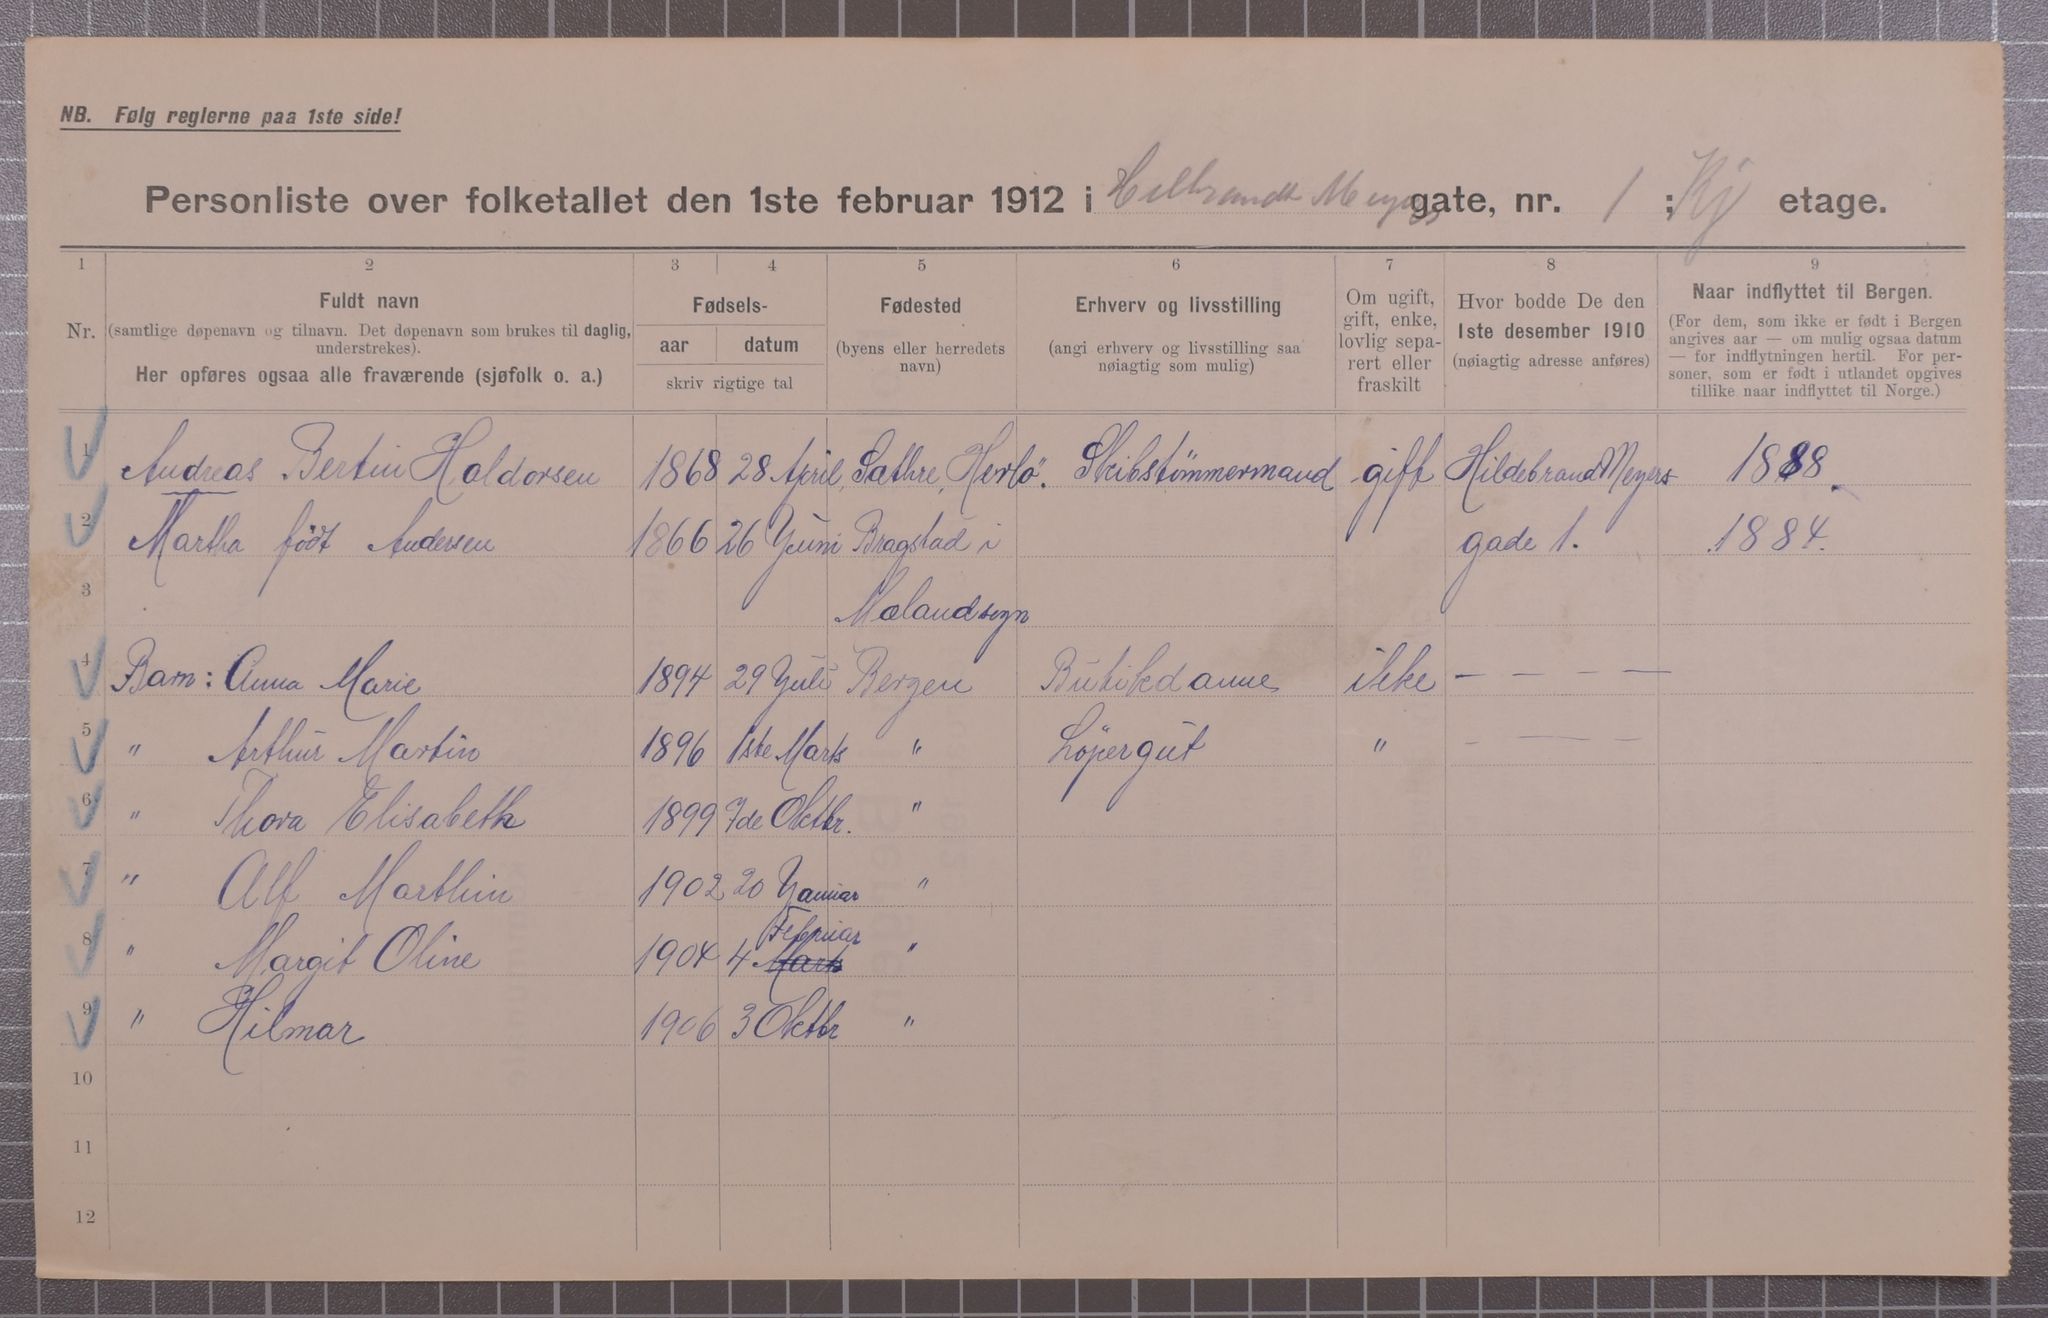 NB. Følg reglerne paa 1ste side!
Personliste over folketallet den 1ste februar 1912 i Hilbrandt Meyers gate, nr. 1 ; Kj etage.
1 2 3 4 5 6 7 8 9
Nr.
Fuldt navn
(samtlige døpenavn og tilnavn. Det døpenavn som brukes til daglig,
understrekes).
Her opføres ogsaa alle fraværende (sjøfolk o. a.)
Fødsels-
aar datum
skriv rigtige tal
Fødested
(byens eller herredets
navn)
Erhverv og livsstilling
(angi erhverv og livsstilling saa
nøiagtig som mulig)
Om ugift,
gift, enke,
lovlig sepa-
rert eller
fraskilt
Hvor bodde De den
1ste desember 1910
(nøiagtig adresse anføres)
Naar indflyttet til Bergen.
(For dem, som ikke er født i Bergen
angives aar — om mulig ogsaa datum
— for indflytningen hertil. For per-
soner, som er født i utlandet opgives
tillike naar indflyttet til Norge.)
1 Andreas Bertin Haldorsen 1868 28 April, Sæthre, Herlö. Skibstömmermand gift Hildebrand Meyers 1888.
2 Martha født Andersen 1866 26 Yuni Bragstad i gade 1. 1884.
3 Mælandsogn
4 Barn: Anna Marie 1894 29 Yuli Bergen Butikdanne ikke — — — —
5 " Arthur Martin 1896 1ste Marts " Löpergut " - — — —
6 " Thora Elisabeth 1899 7de Oktbr. "
7 " Alf Marthin 1902 20 Yanuar "
Februar
8 " Margit Oline 1904 4 Marts "
9 " Hilmar 1906 3 Oktbr "
10
11
12